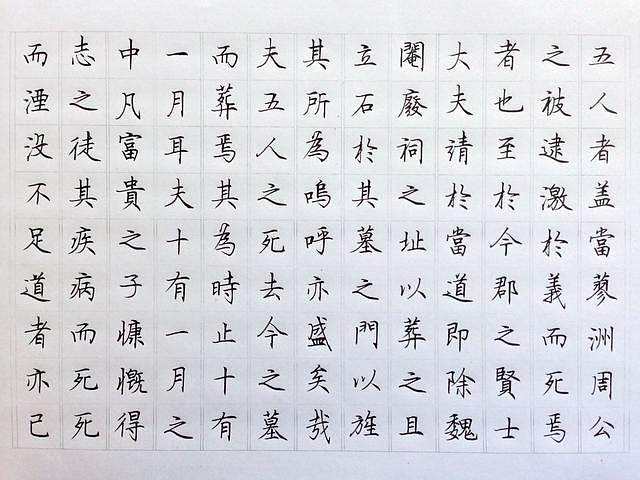 五人者盖當蓼洲周公
之被逮激於義而死焉
者也至於今郡之賢士
大夫請於當道即除魏
閹廢祠之址以葬之且
立石於其墓之門以旌
其所為嗚呼亦盛矣哉
夫五人之死去今之墓
而葬焉其為時止十有
一月耳夫十有一月之
中凡富貴之子慷慨得
志之徒其疾病而死死
而湮没不足道者亦已